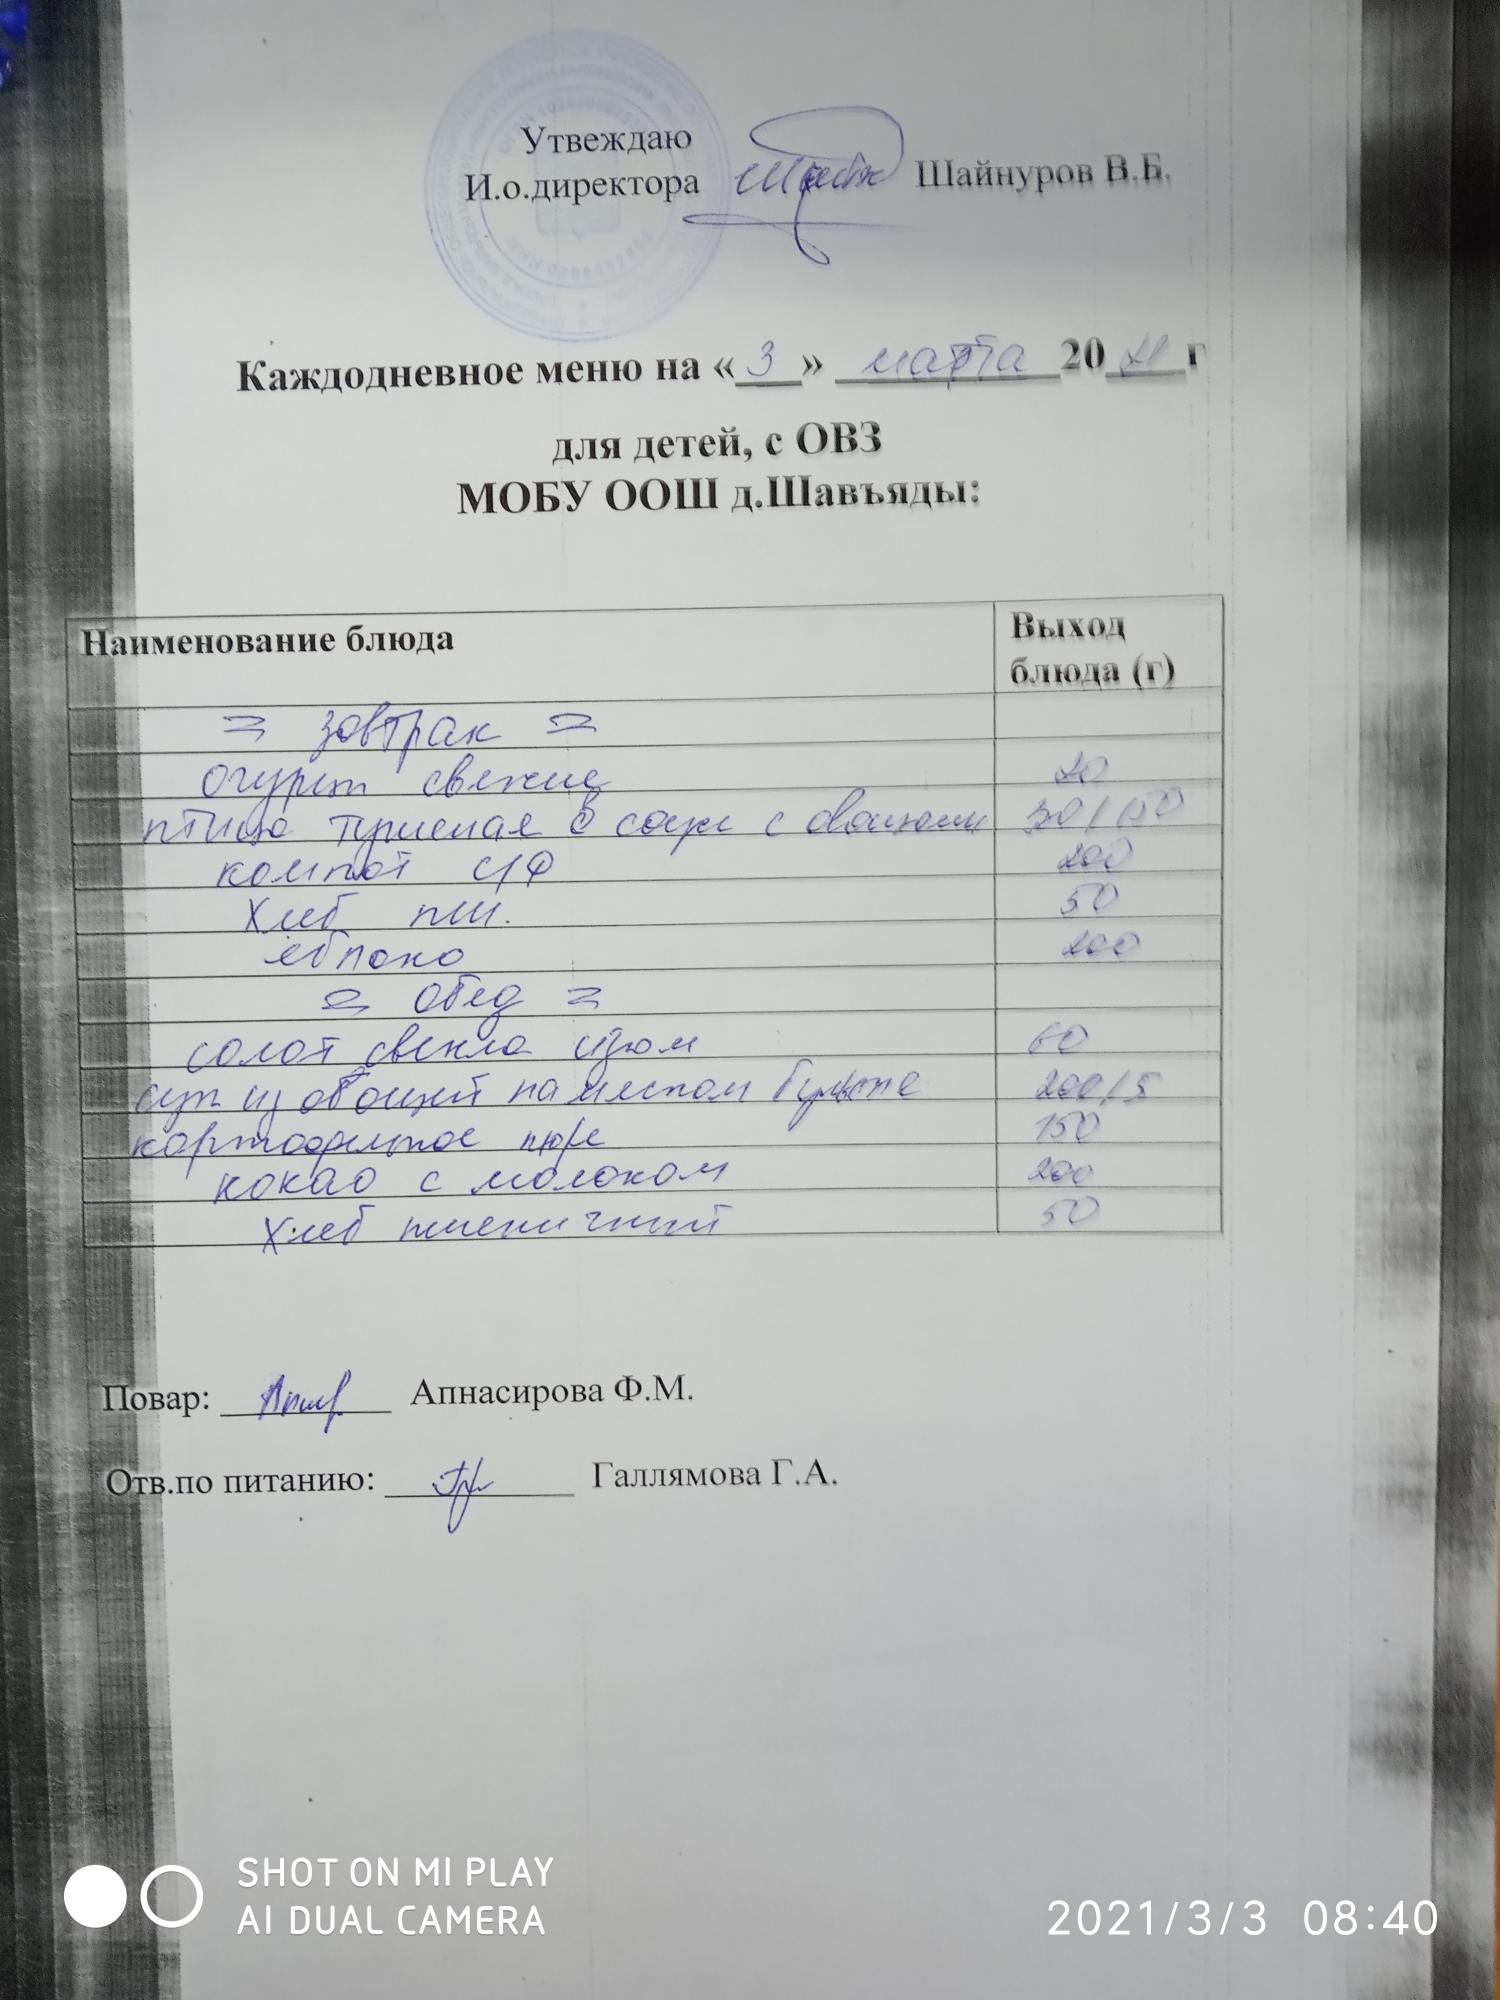 Утвеждаю
И.о.директора Шайнуров В.Б.
Каждодневное меню на «3» марта 2021 г
для детей, с ОВЗ
МОБУ ООШ д.Шавъяды:
Наименование блюда Выход блюда (г)
= завтрак =
огурцы свежие 20
птица тушеная в соусе с овощами 50/150
компот с/ф 200
Хлеб пш. 50
яблоко 200
= обед =
салат свекла изюм 60
суп из овощей на мясном бульоне 200/5
картофельное пюре 150
какао с молоком 200
Хлеб пшеничный 50
Повар: Апнасирова Ф.М.
Отв.по питанию: Галлямова Г.А.
SHOT ON MI PLAY
AI DUAL CAMERA
2021/3/3 08:40